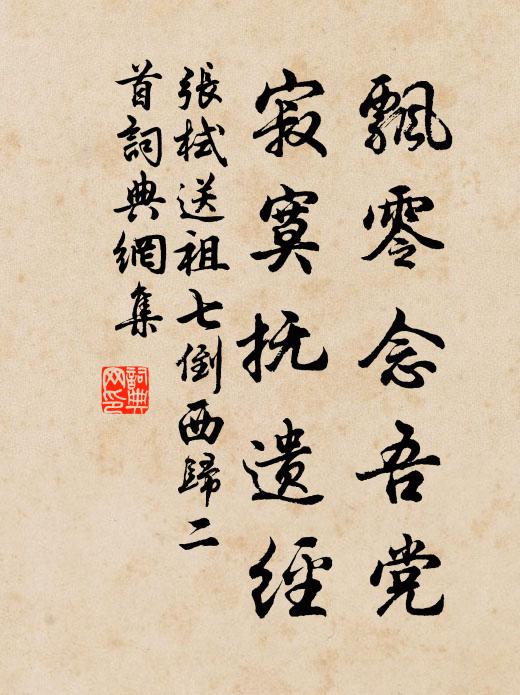 飄零念吾党
寂寞抚遗經
張栻送祖七倒西歸二
首詞典網集
詞典网印